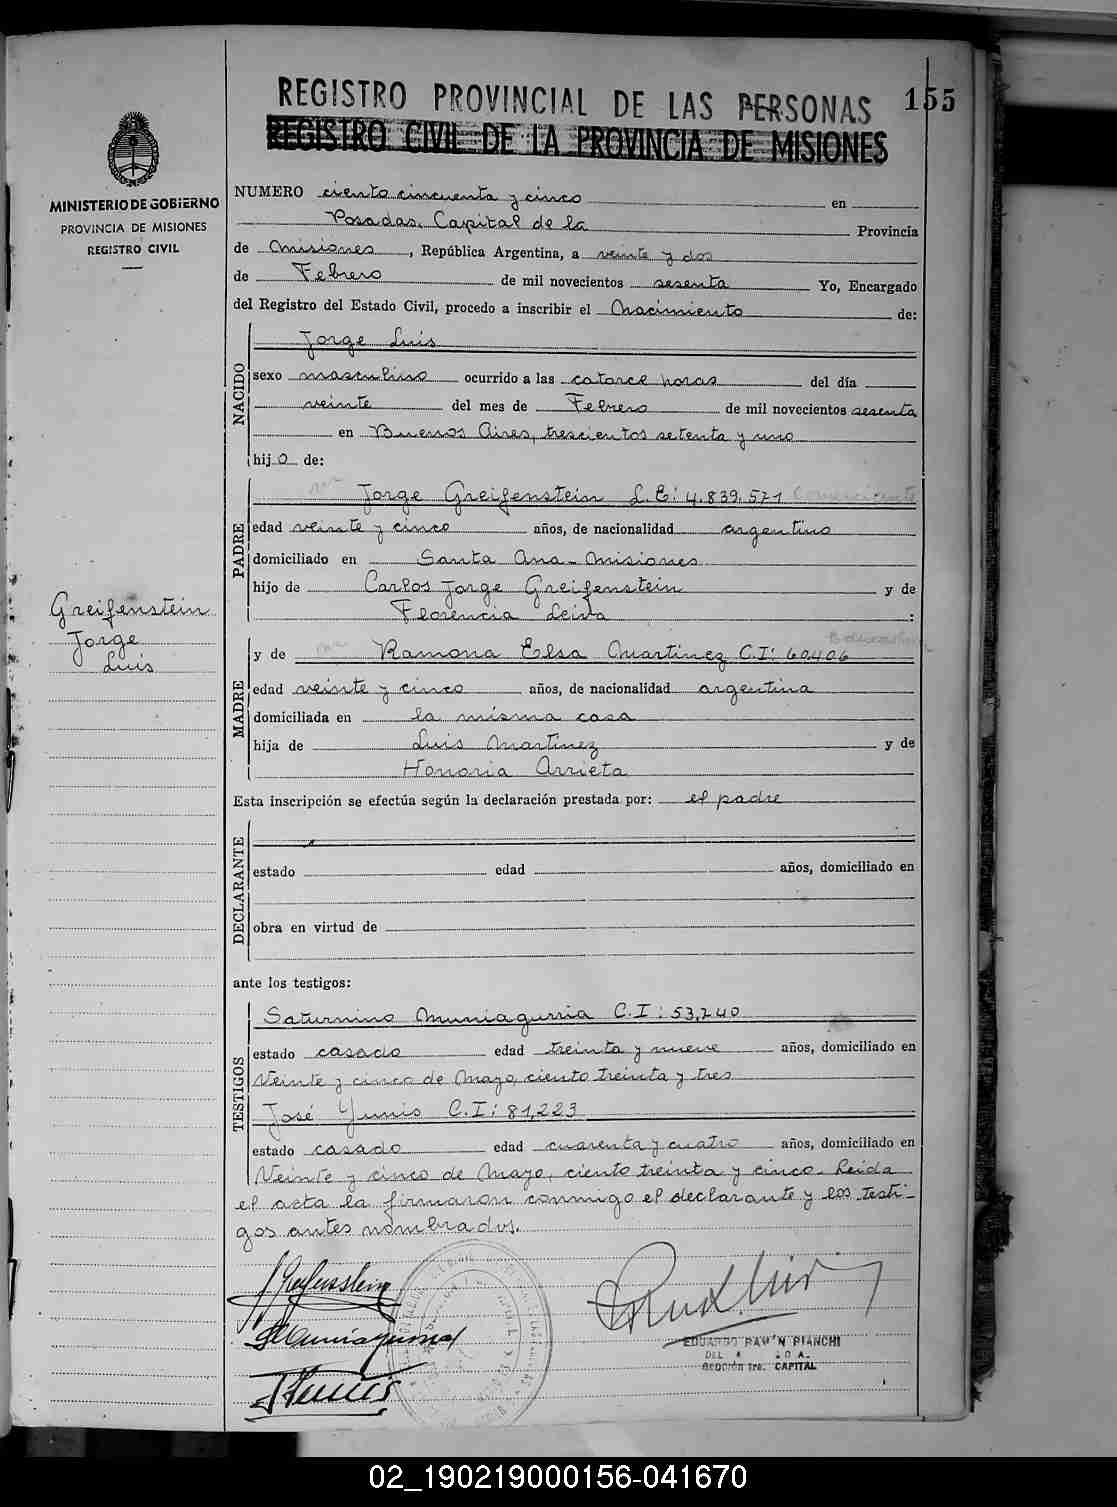 155
REGISTRO PROVINCIAL DE LAS PERSONAS
REGISTRO CIVIL DE LA PROVINCIA DE MISIONES
MINISTERIO DE GOBIERNO
PROVINCIA DE MISIONES
REGISTRO CIVIL
NUMERO ciento cincuenta y cinco en
Posadas, Capital de la Provincia
de Misiones, República Argentina, a veinte y dos
de Febrero de mil novecientos sesenta Yo, Encargado
del Registro del Estado Civil, procedo a inscribir el Nacimiento de:
NACIDO
Jorge Luis
sexo masculino ocurrido a las catorce horas del día
veinte del mes de Febrero de mil novecientos sesenta
en Buenos Aires, trescientos setenta y uno
hijo de:
PADRE
Jorge Greifenstein L.E: 4.839.571
edad veinte y cinco años, de nacionalidad argentino
domiciliado en Santa Ana - Misiones
hijo de Carlos Jorge Greifenstein y de
Florencia Leiva :
Greifenstein
Jorge
Luis
MADRE
y de Ramona Elsa Martinez C.I: 60.406
edad veinte y cinco años, de nacionalidad argentina
domiciliada en la misma casa
hija de Luis Martinez y de
Honoria Arrieta
Esta inscripción se efectúa según la declaración prestada por: el padre
DECLARANTE
estado edad años, domiciliado en
obra en virtud de
ante los testigos:
TESTIGOS
Saturnino Muniagurria C.I: 53,240
estado casado edad treinta y nueve años, domiciliado en
Veinte y cinco de Mayo, ciento treinta y tres
José Yunis C.I: 81,223
estado casado edad cuarenta y cuatro años, domiciliado en
Veinte y cinco de Mayo, ciento treinta y cinco. Leida
el acta la firmaron conmigo el declarante y los testi-
gos antes nombrados.
EDUARDO RAMÓN BIANCHI
SECCIÓN 1ra. CAPITAL
02_190219000156-041670